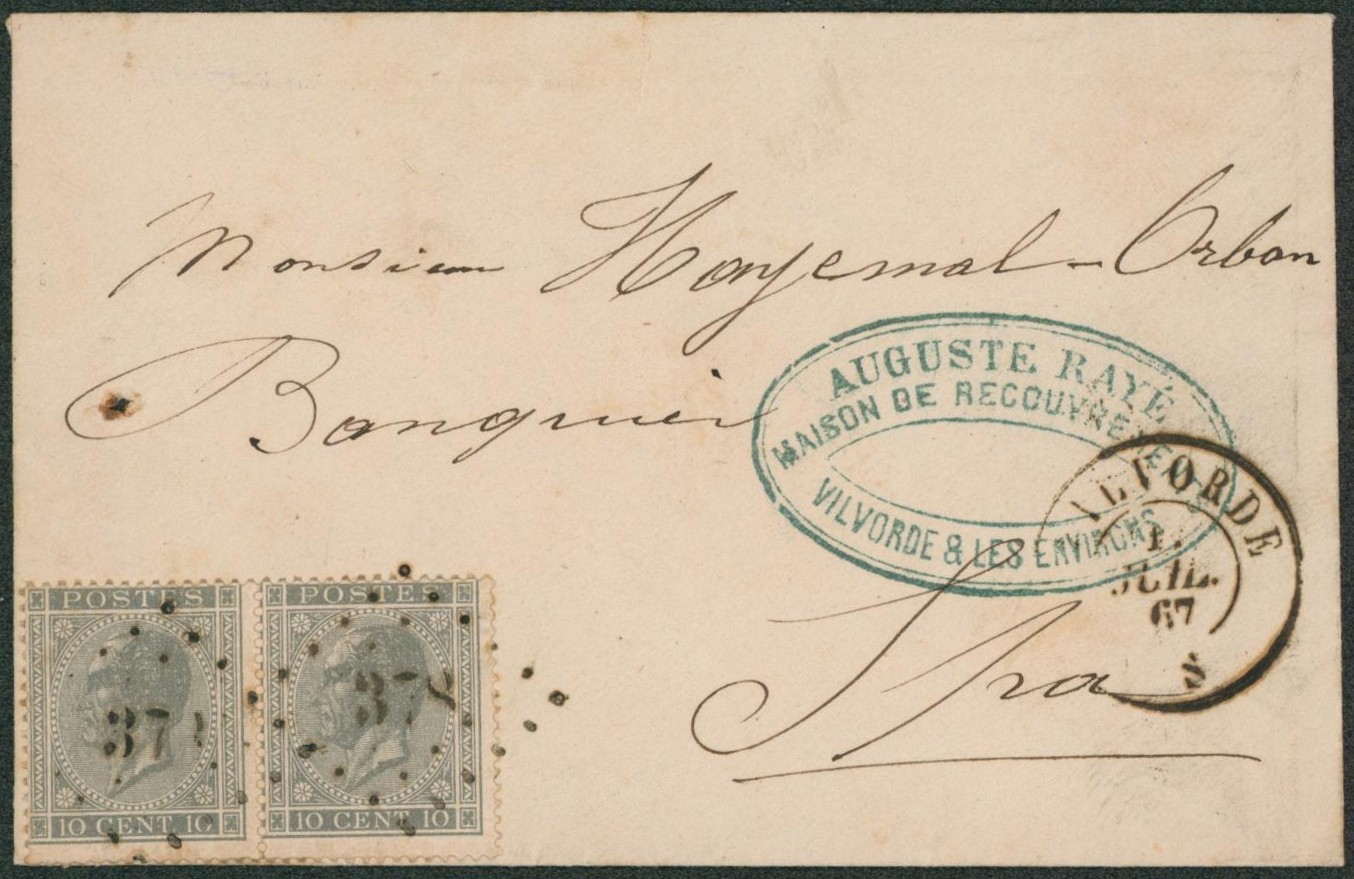 Monsieur Hayemal-Orban
Banquier
AUGUSTE RAYÉ
MAISON DE RECOUVREMENTS
VILVORDE & LES ENVIRONS
VILVORDE
1.
JUIL.
67
8
Spa
POSTES
10 CENT 10
POSTES
10 CENT 10